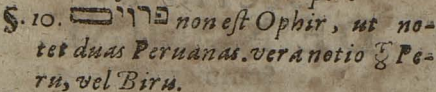 §. 10. פרוים non eſt Ophir, ut no-
tet duas Peruanas. vera notio Pe-
ru, vel Biru.